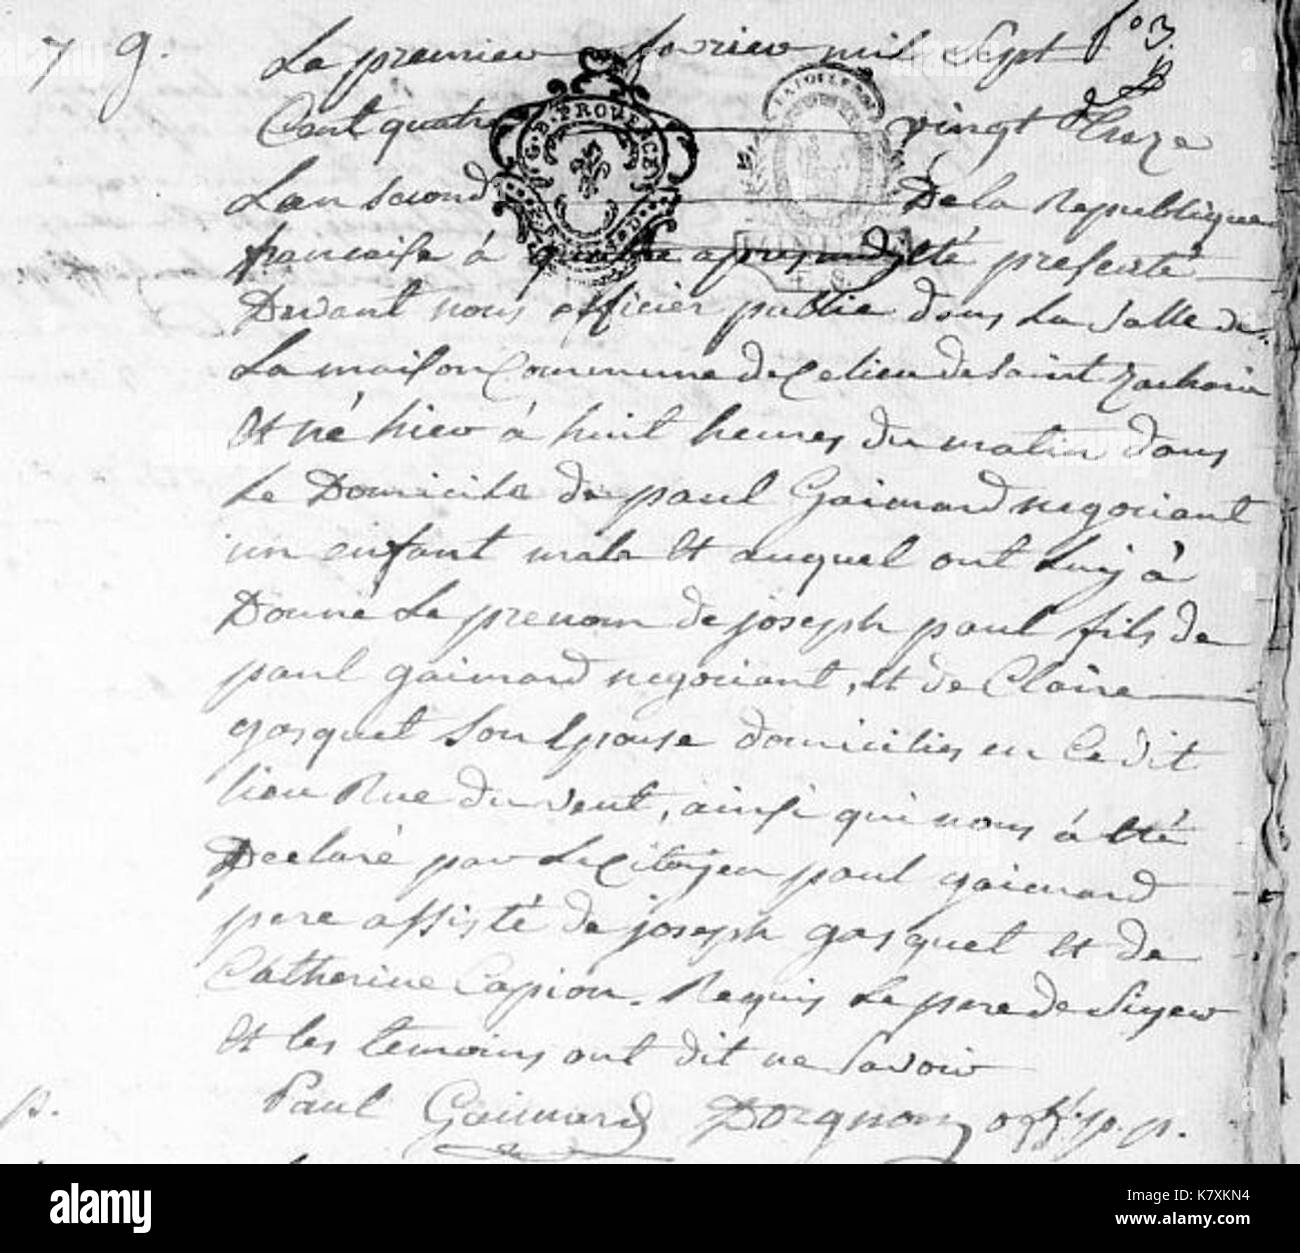 7 g.
Le premier fevrier mil sept
fo 3.
Cent quatre vingt treze
L'an second De la Republique
francaise à quatre apres midy été presenté
Devant nous officier public dans la Salle de
La maison Commune de Ce lieu de Saint Zacharie
et né hier à huit heures du matin dans
Le Domicile de paul Gaimard negociant
un enfant male et auquel ont
Donné Le prenom de joseph paul fils de
paul gaimard negociant, et de Claire
gasquet son Epouse domicilies en Ce dit
lieu Rue du vent, ainsi qui nous à été
Declaré par Le Citoyen paul gaimard
pere assisté de joseph gasquet et de
Catherine Capion. Requis Le pere de Signer
et les temoins ont dit ne Savoir
Paul Gaimard Dorgnon off. p. p.
p.
G. D. PROVENCE
LA LOI LE ROI
alamy
Image ID: K7XKN4
www.alamy.com